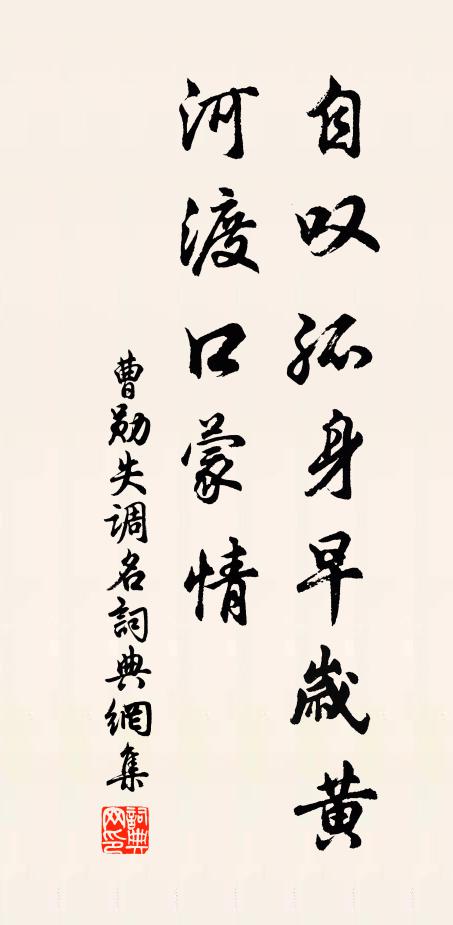 自叹孤身早歳黄
河渡口蒙情
曹勋失调名詞典網集
詞典网印